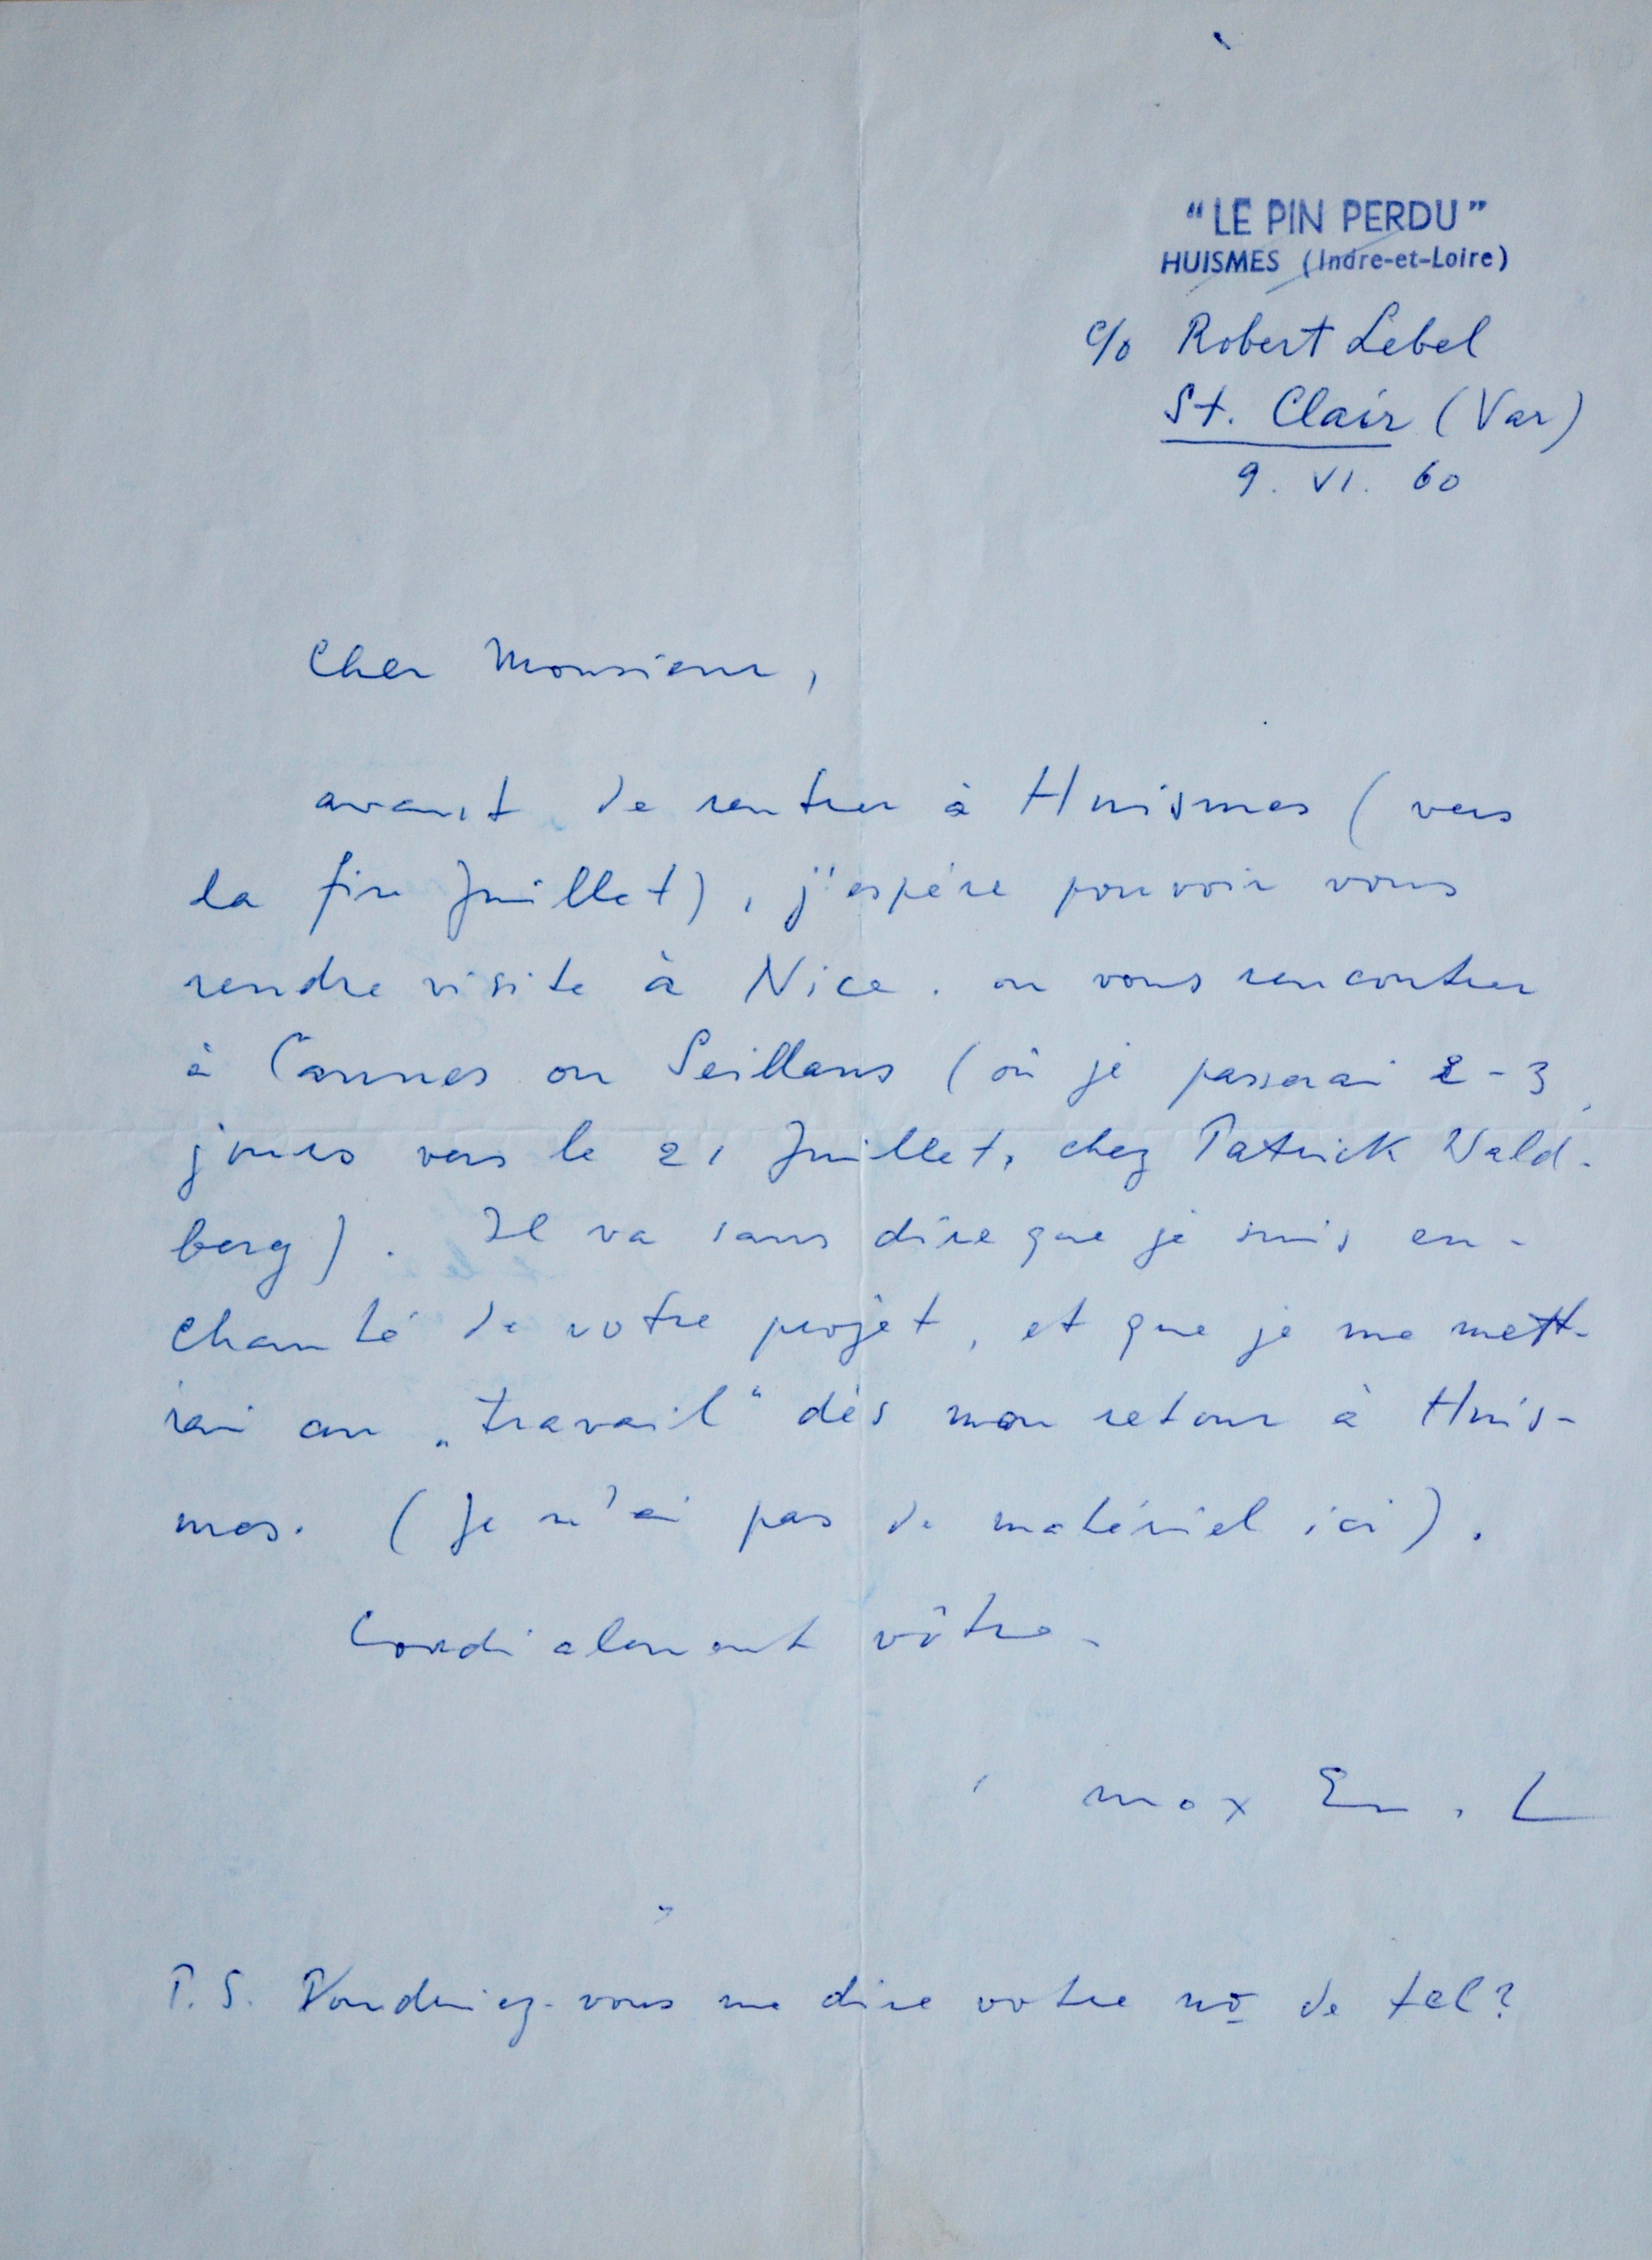 “LE PIN PERDU”
HUISMES (Indre-et-Loire)
c/o Robert Lebel
St. Clair (Var)
9. VI. 60
Cher Monsieur,
avant de rentrer à Huismes (vers
la fin Juillet), j'espère pouvoir vous
rendre visite à Nice. ou vous rencontrer
à Cannes ou Seillans (où je passerai 2-3
jours vers le 21 Juillet, chez Patrick Wald-
berg). Il va sans dire que je suis en-
chanté de votre projet, et que je me mett-
rai au „travail“ dès mon retour à Huis-
mes. (Je n'ai pas de matériel ici).
Cordialement vôtre.
max Ernst
P.S. Voudriez-vous me dire votre no de tel?